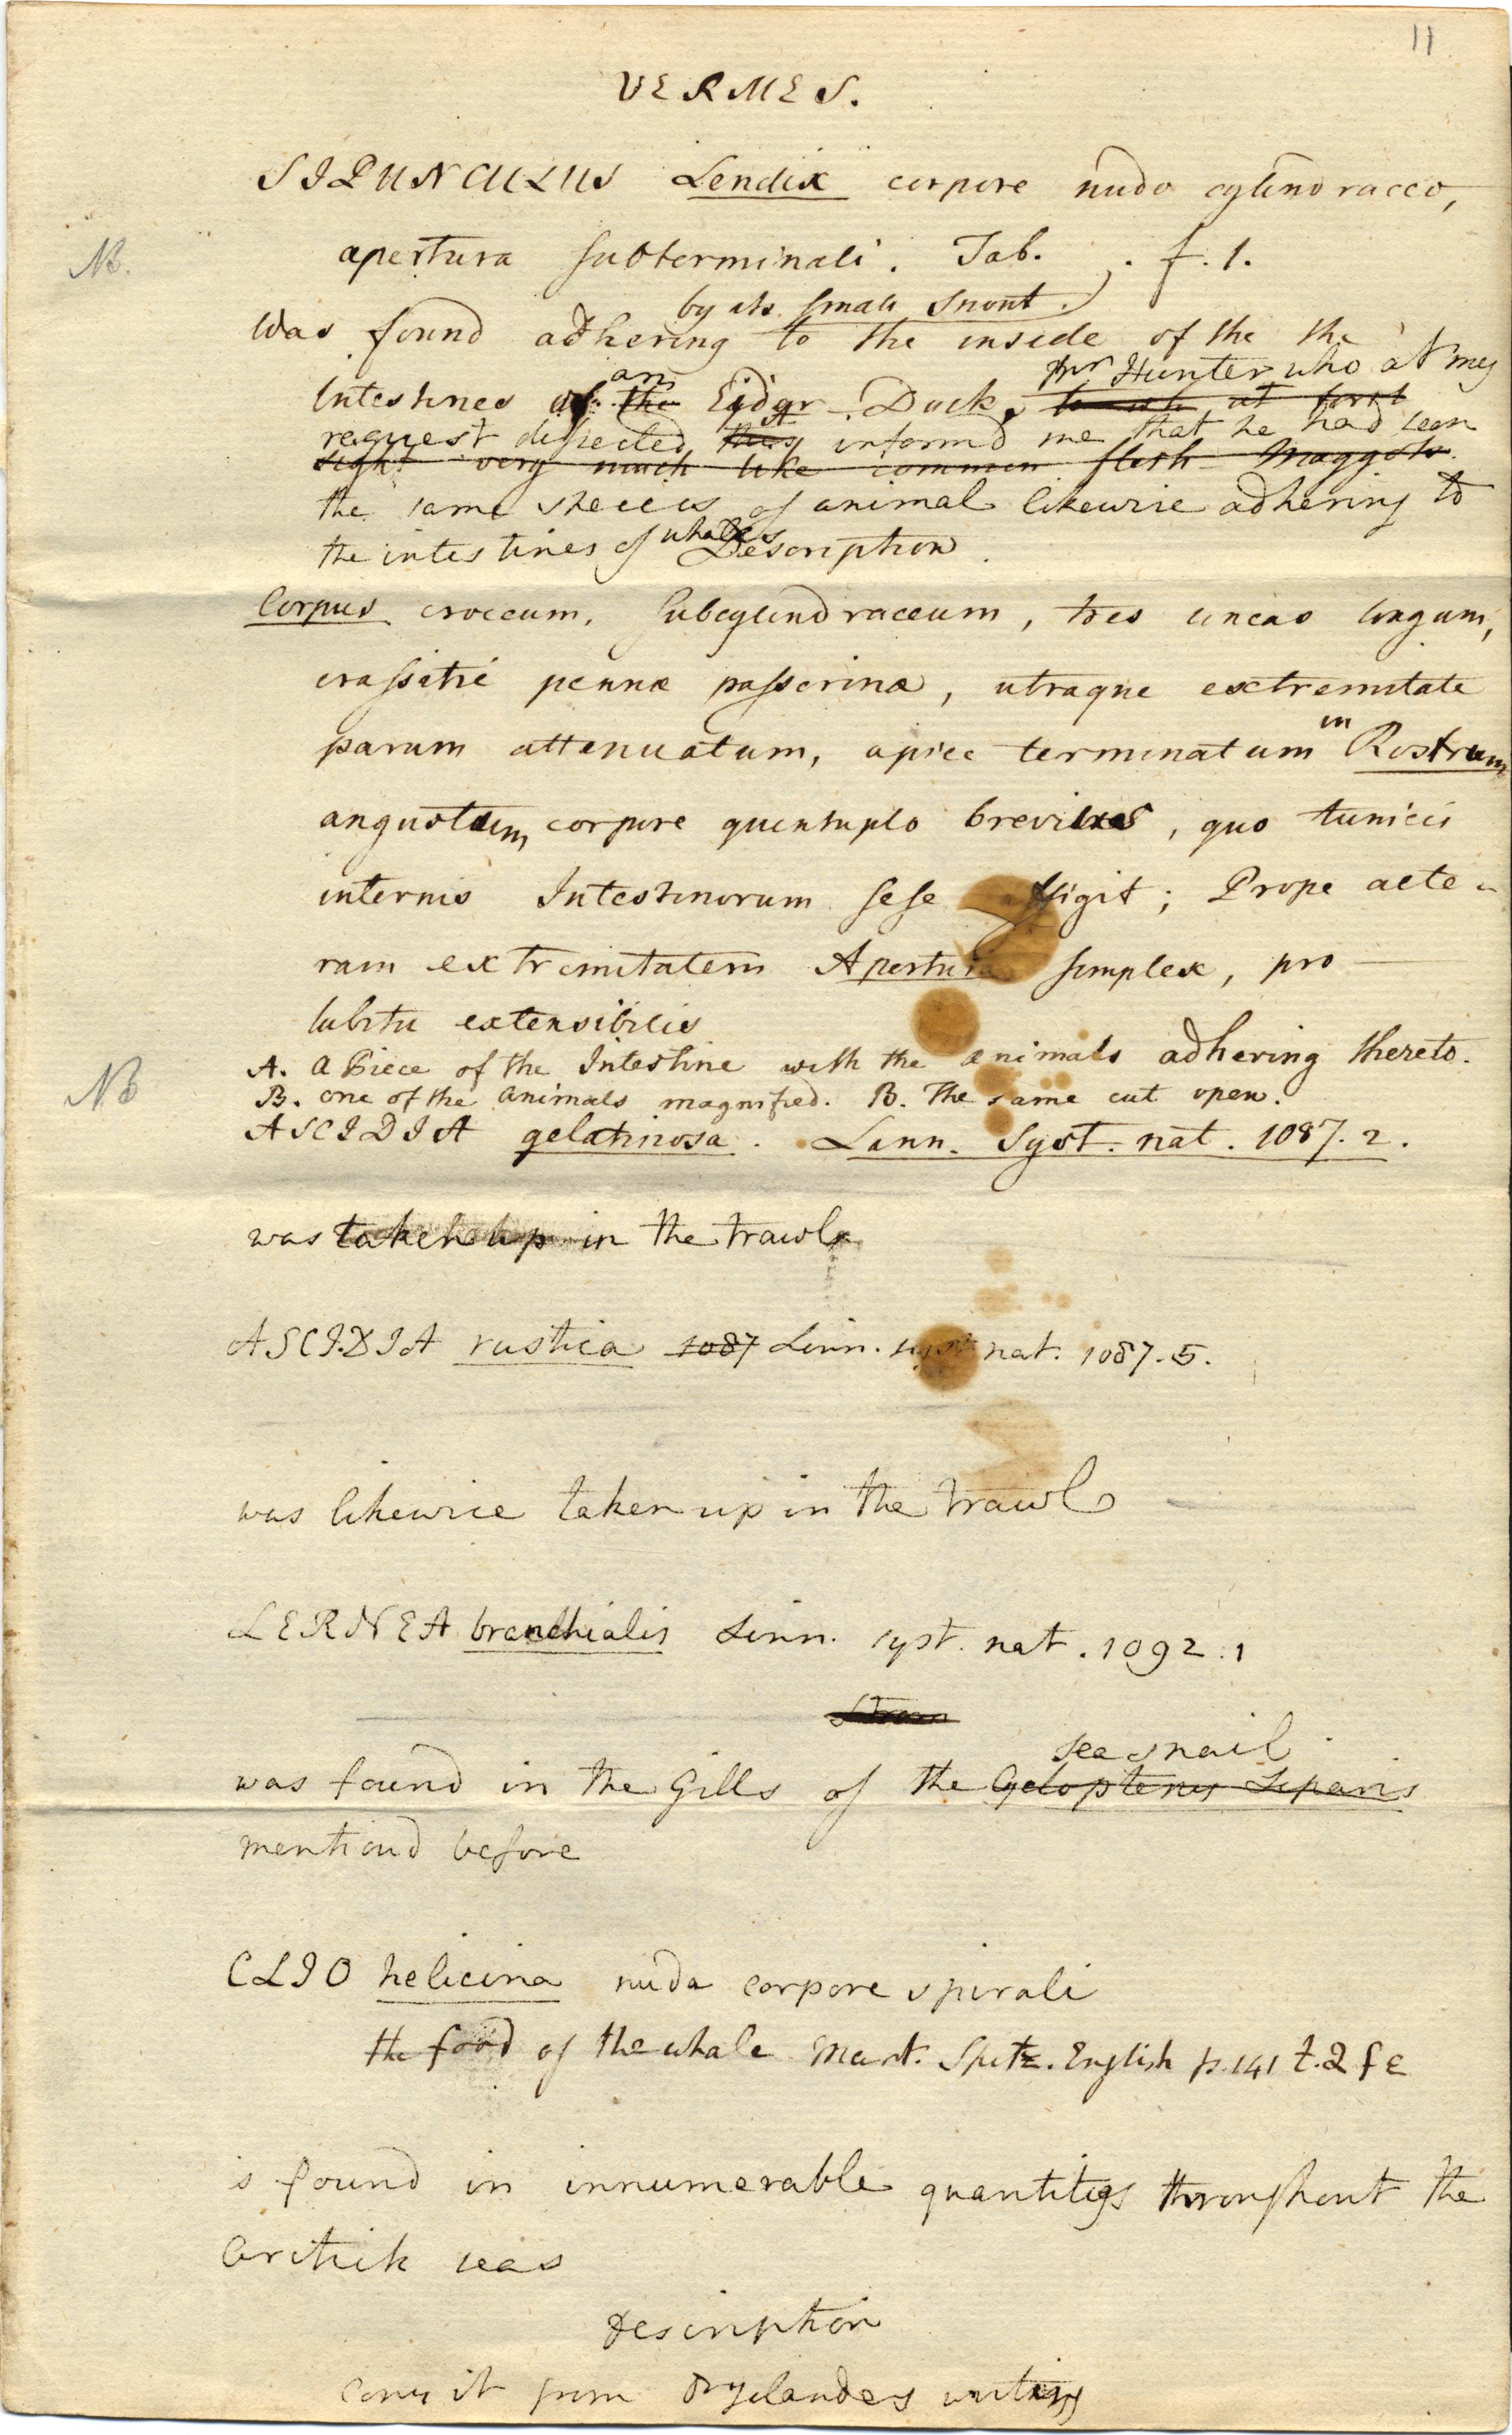 11
VERMES.
SIPUNCULUS Lendix corpore nudo cylindraceo,
NB. apertura subterminali. Tab. . f. 1.
by its small snout.
Was found adhering to the inside of the the
an Mr Hunter who at my
Intestines of the Eydar-Duck, at first
request dissected it informd me that he had seen
sight very much like common flesh Maggots.
the same species of animal likewise adhering to
the intestines of whales
Description.
Corpus croceum, subcylindraceum, tres lineas longum,
crassitie pennæ passerinæ, utraque extremitate
parum attenuatum, apice terminatum in Rostrum
angustum, corpore quintuplo brevius, quo tunicis
internis Intestinorum sese affigit; Prope alte-
ram extremitatem Apertura simplex, pro
lubitu extensibilis
A. a Piece of the Intestine with the animals adhering thereto.
NB B. one of the animals magnified. B. The same cut open.
ASCIDIA gelatinosa. Linn. Syst. nat. 1087. 2.
was taken up in the trawl
ASCIDIA rustica 1087 Linn. syst. nat. 1087. 5.
was likewice taken up in the trawl
LERNEA branchialis Linn. syst. nat. 1092. 1
sea snail
was found in the Gills of the Cyclopterus Liparis
mentiond before
CLIO helicina nuda corpore spirali
the food of the whale Mart. Spitz. English p. 141 t. Q f e
is found in innumerable quantities throughout the
Arctick seas
Description
Copy it from Dryelanders writing